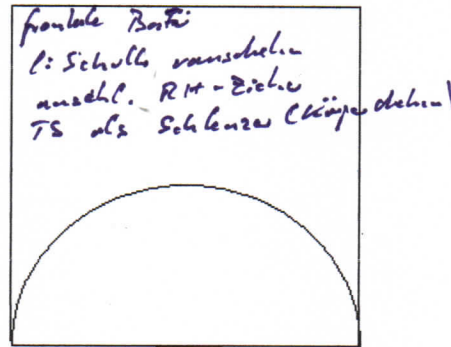 frontale
l: Schulter vorschieben
anschl. RH-Zieher
TS als Schlenzer (Körper drehen)